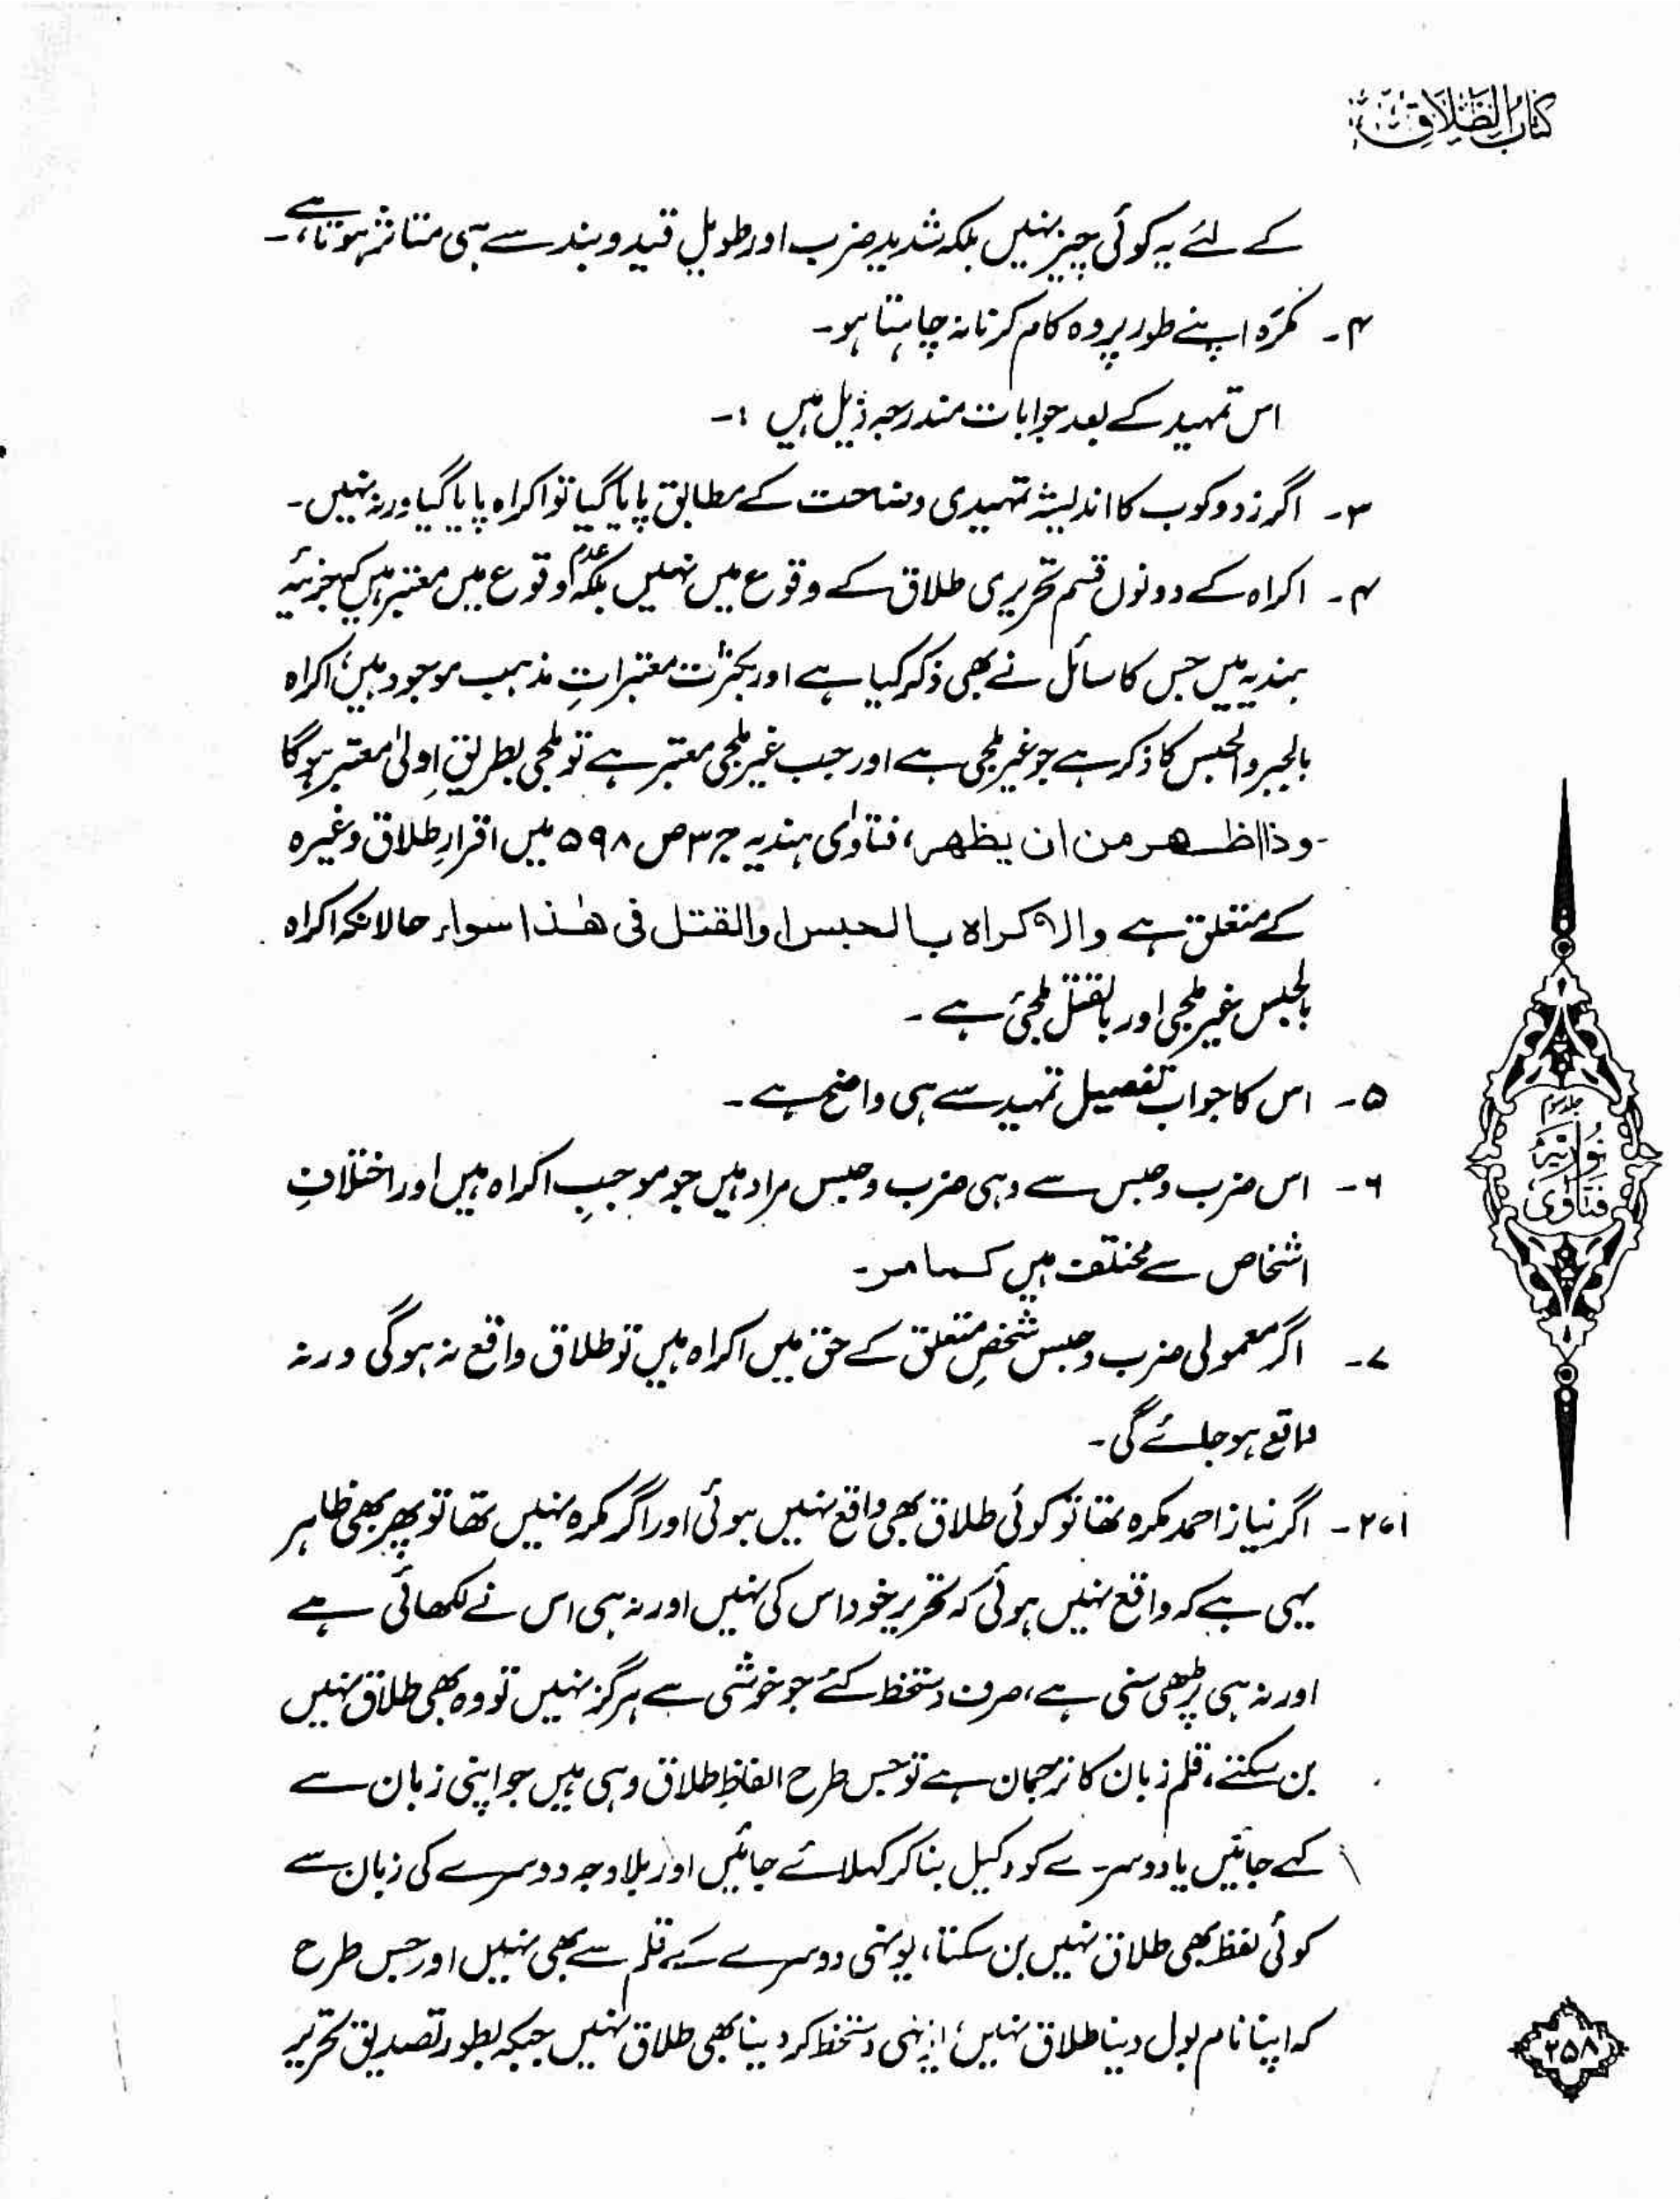 کتاب الطلاق
کے لئے یہ کوئی چیز نہیں بلکہ شدید ضرب اور طویل قید و بند سے ہی متاثر ہوتا ہے۔
۴۔ مکرَہ اپنے طور پر وہ کام کرنا نہ چاہتا ہو۔
اس تمہید کے بعد جوابات مندرجہ ذیل ہیں :۔
۳۔ اگر زد و کوب کا اندیشہ تمہیدی وضاحت کے مطابق پایا گیا تو اکراہ پایا گیا ورنہ نہیں۔
۴۔ اکراہ کے دونوں قسم تحریری طلاق کے وقوع میں نہیں بلکہ عدم وقوع میں معتبر ہیں کہ جزئیہ
ہندیہ میں جس کا سائل نے بھی ذکر کیا ہے اور بکثرت معتبراتِ مذہب موجود ہیں، اکراہ
بالجبر والحبس کا ذکر ہے جو غیر ملجی ہے اور جب غیر ملجی معتبر ہے تو ملجی بطریقِ اولیٰ معتبر ہوگا
وذا اظھر من ان یظھر، فتاوٰی ہندیہ ج ۳ ص ۵۹۸ میں اقرارِ طلاق وغیرہ
کے متعلق ہے والاکراہ بالحبس او القتل فی ھٰذا سواء حالانکہ اکراہ
بالحبس غیر ملجی اور بالقتل ملجئ ہے۔
۵۔ اس کا جواب تفصیل تمہید سے ہی واضح ہے۔
۶۔ اس ضرب و حبس سے وہی ضرب و حبس مراد ہیں جو موجبِ اکراہ ہیں اور اختلافِ
اشخاص سے مختلف ہیں کما مر۔
۷۔ اگر معمولی ضرب و حبس شخصِ متعلق کے حق میں اکراہ ہیں تو طلاق واقع نہ ہوگی ورنہ
واقع ہو جائے گی۔
۱،۲۔ اگر نیاز احمد مکرہ تھا تو کوئی طلاق بھی واقع نہیں ہوئی اور اگر مکرہ نہیں تھا تو پھر بھی ظاہر
یہی ہے کہ واقع نہیں ہوئی کہ تحریر خود اس کی نہیں اور نہ ہی اس نے لکھائی ہے
اور نہ ہی پڑھی سنی ہے، صرف دستخط کئے جو خوشی سے ہرگز نہیں تو وہ بھی طلاق نہیں
بن سکتے، قلم زبان کا ترجمان ہے تو جس طرح الفاظِ طلاق وہی ہیں جو اپنی زبان سے
کہے جائیں یا دوسرے کو وکیل بنا کر کہلائے جائیں اور بلاوجہ دوسرے کی زبان سے
کوئی لفظ بھی طلاق نہیں بن سکتا، یونہی دوسرے کے قلم سے بھی نہیں اور جس طرح
کہ اپنا نام بول دینا طلاق نہیں، یونہی دستخط کر دینا بھی طلاق نہیں جبکہ بطور تصدیق تحریر
جلد سوم
نوریہ
فتاویٰ
۲۵۸